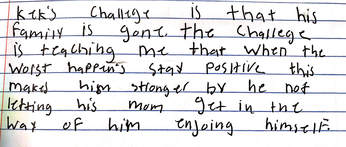 Kek's Challige is that his
family is gone. the Challege
is teaching me that when the
worst happen's stay positive this
makes him stronger by he not
letting his mom get in the
way of him enjoing himself.